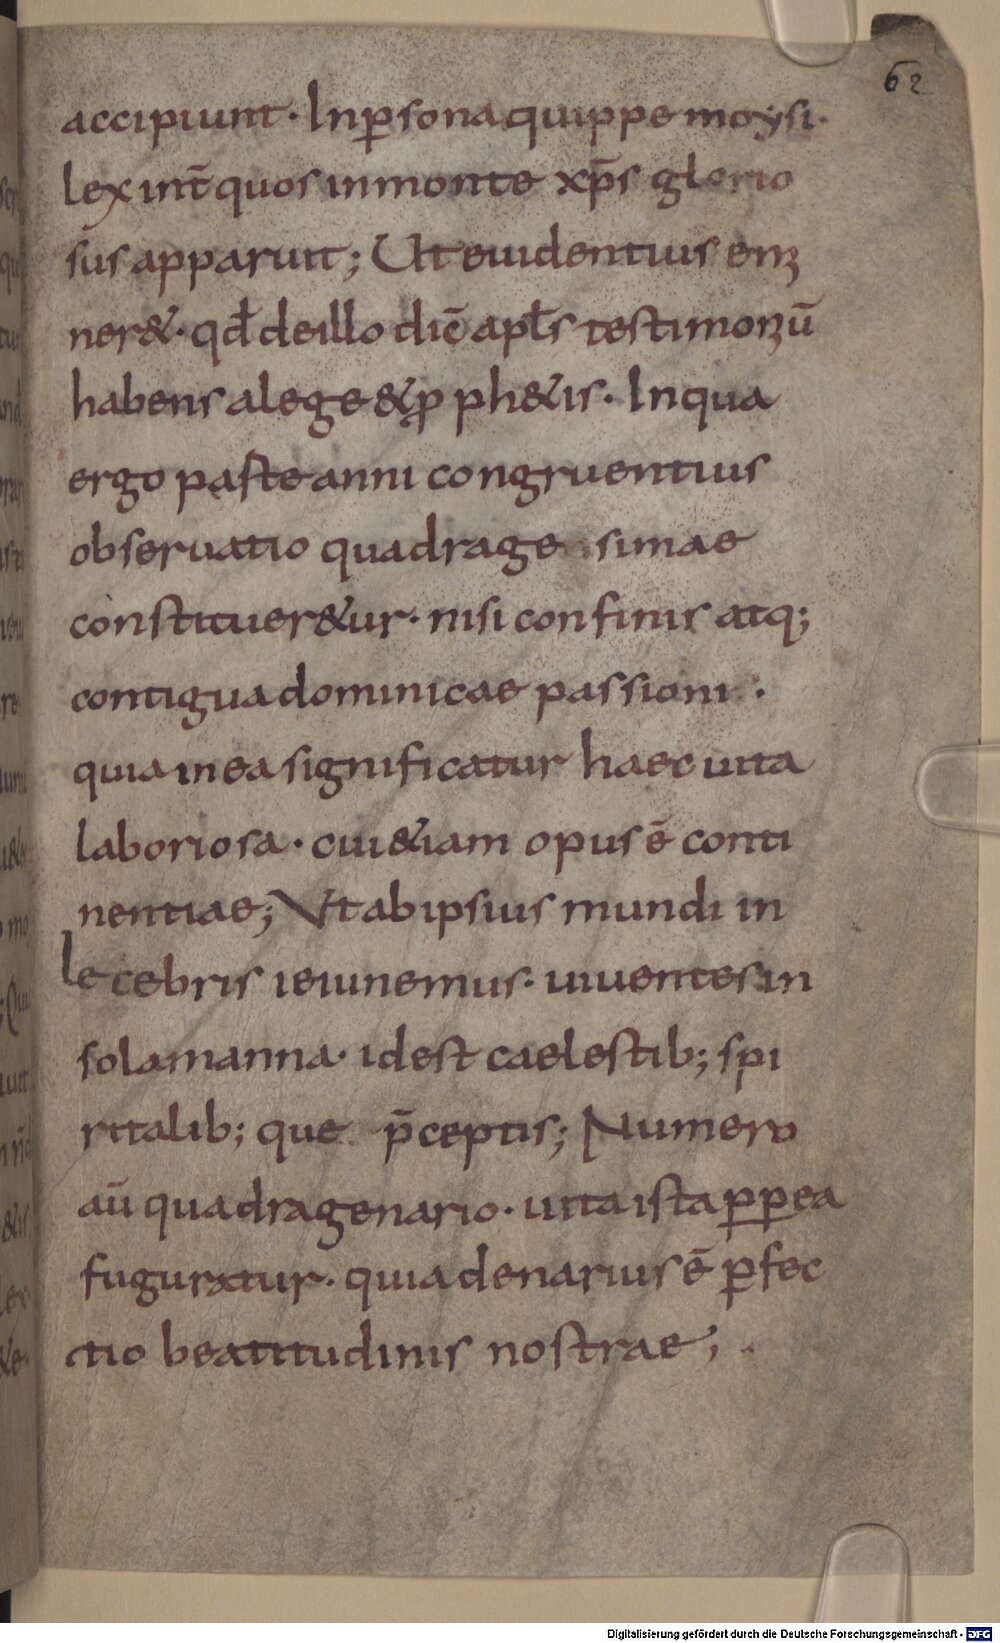 62
accipiunt · In p̱sona quippe moysi ·
lex int̄ quos in monte xp̄s glorio
sus apparuit ; Ut euidentius emi
ner& · qđ de illo dic̄ apłs testimoniū
habens a lege & ꝓph&is · In qua
ergo paste anni congruentius
obseruatio quadrage simae
constituer&ur · nisi confinis atq;
contigua dominicae passioni ·
quia in ea significatur haec uita
laboriosa · cui &iam opus ē conti
nentiae ; Ut ab ipsius mundi in
lecebris ieiunemus · uiuentes in
sola manna · id est caelestib; spi
ritalib; que p̄ceptis ; Numero
aū quadragenario · uita ista ꝓpea
fugurxtur · quia denarius ē ꝑfec
tio beatitudinis nostrae ;
Digitalisierung gefördert durch die Deutsche Forschungsgemeinschaft - DFG